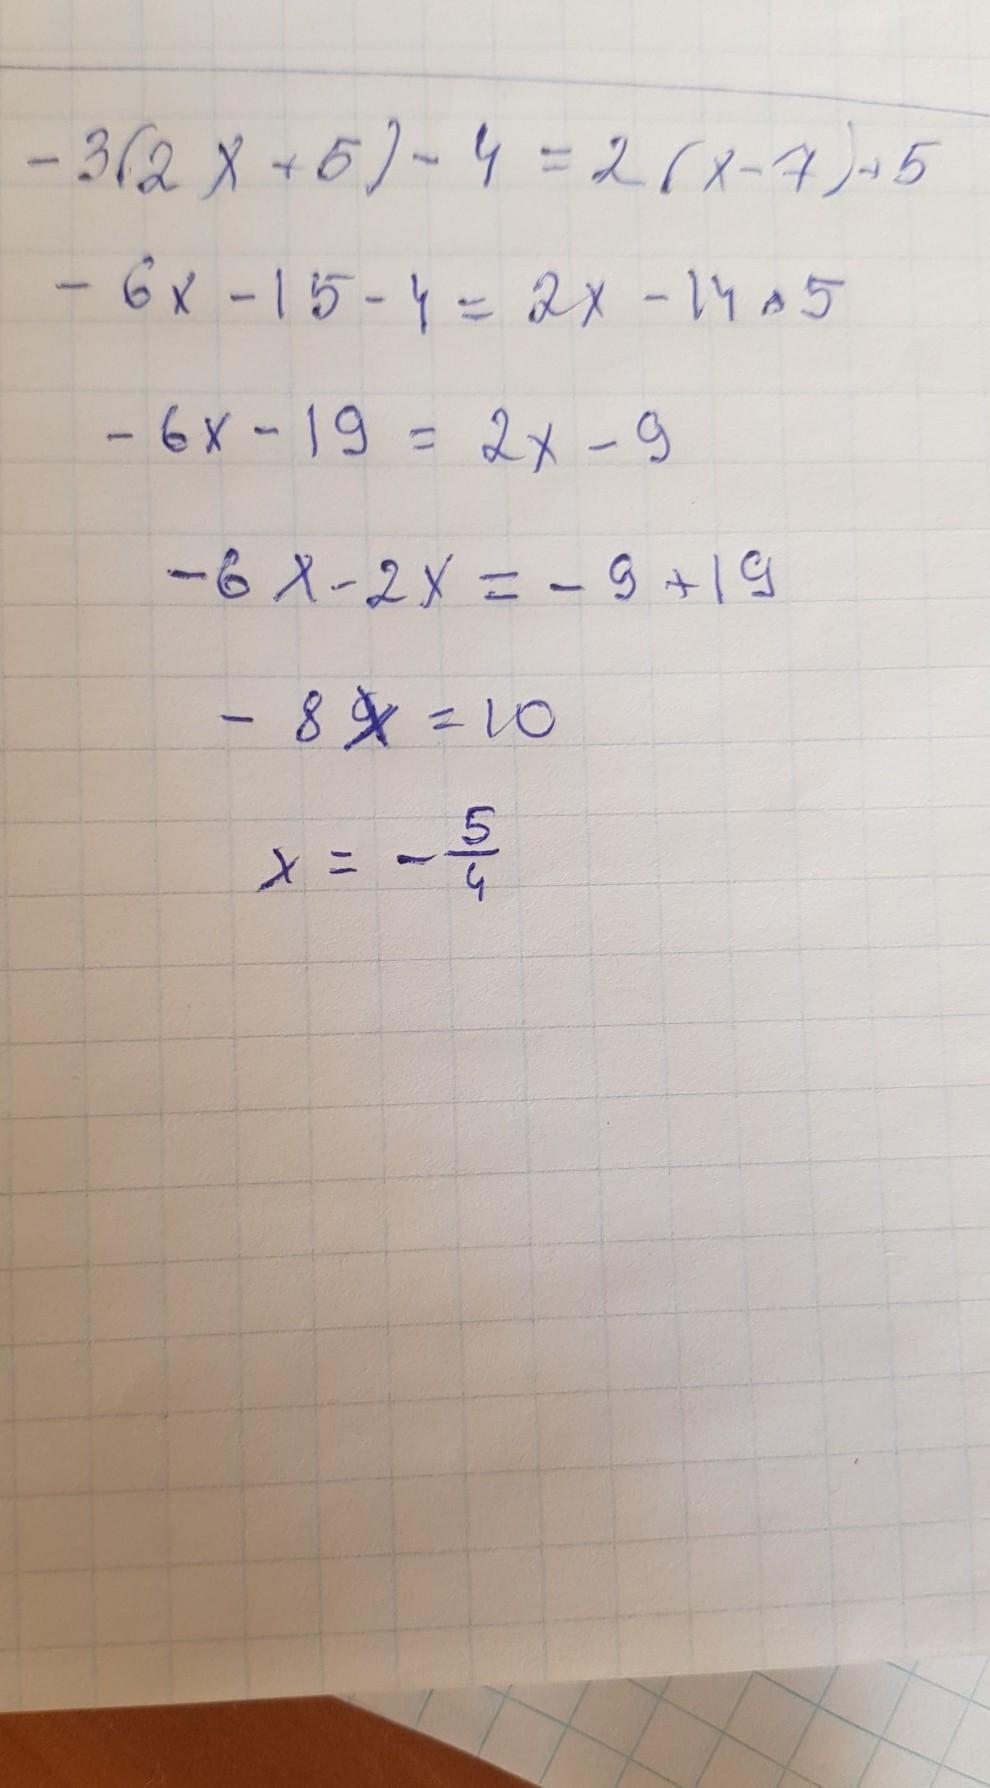 -3(2x+5)-4=2(x-7)+5
-6x-15-4=2x-14+5
-6x-19=2x-9
-6x-2x=-9+19
-8x=10
x=-5/4